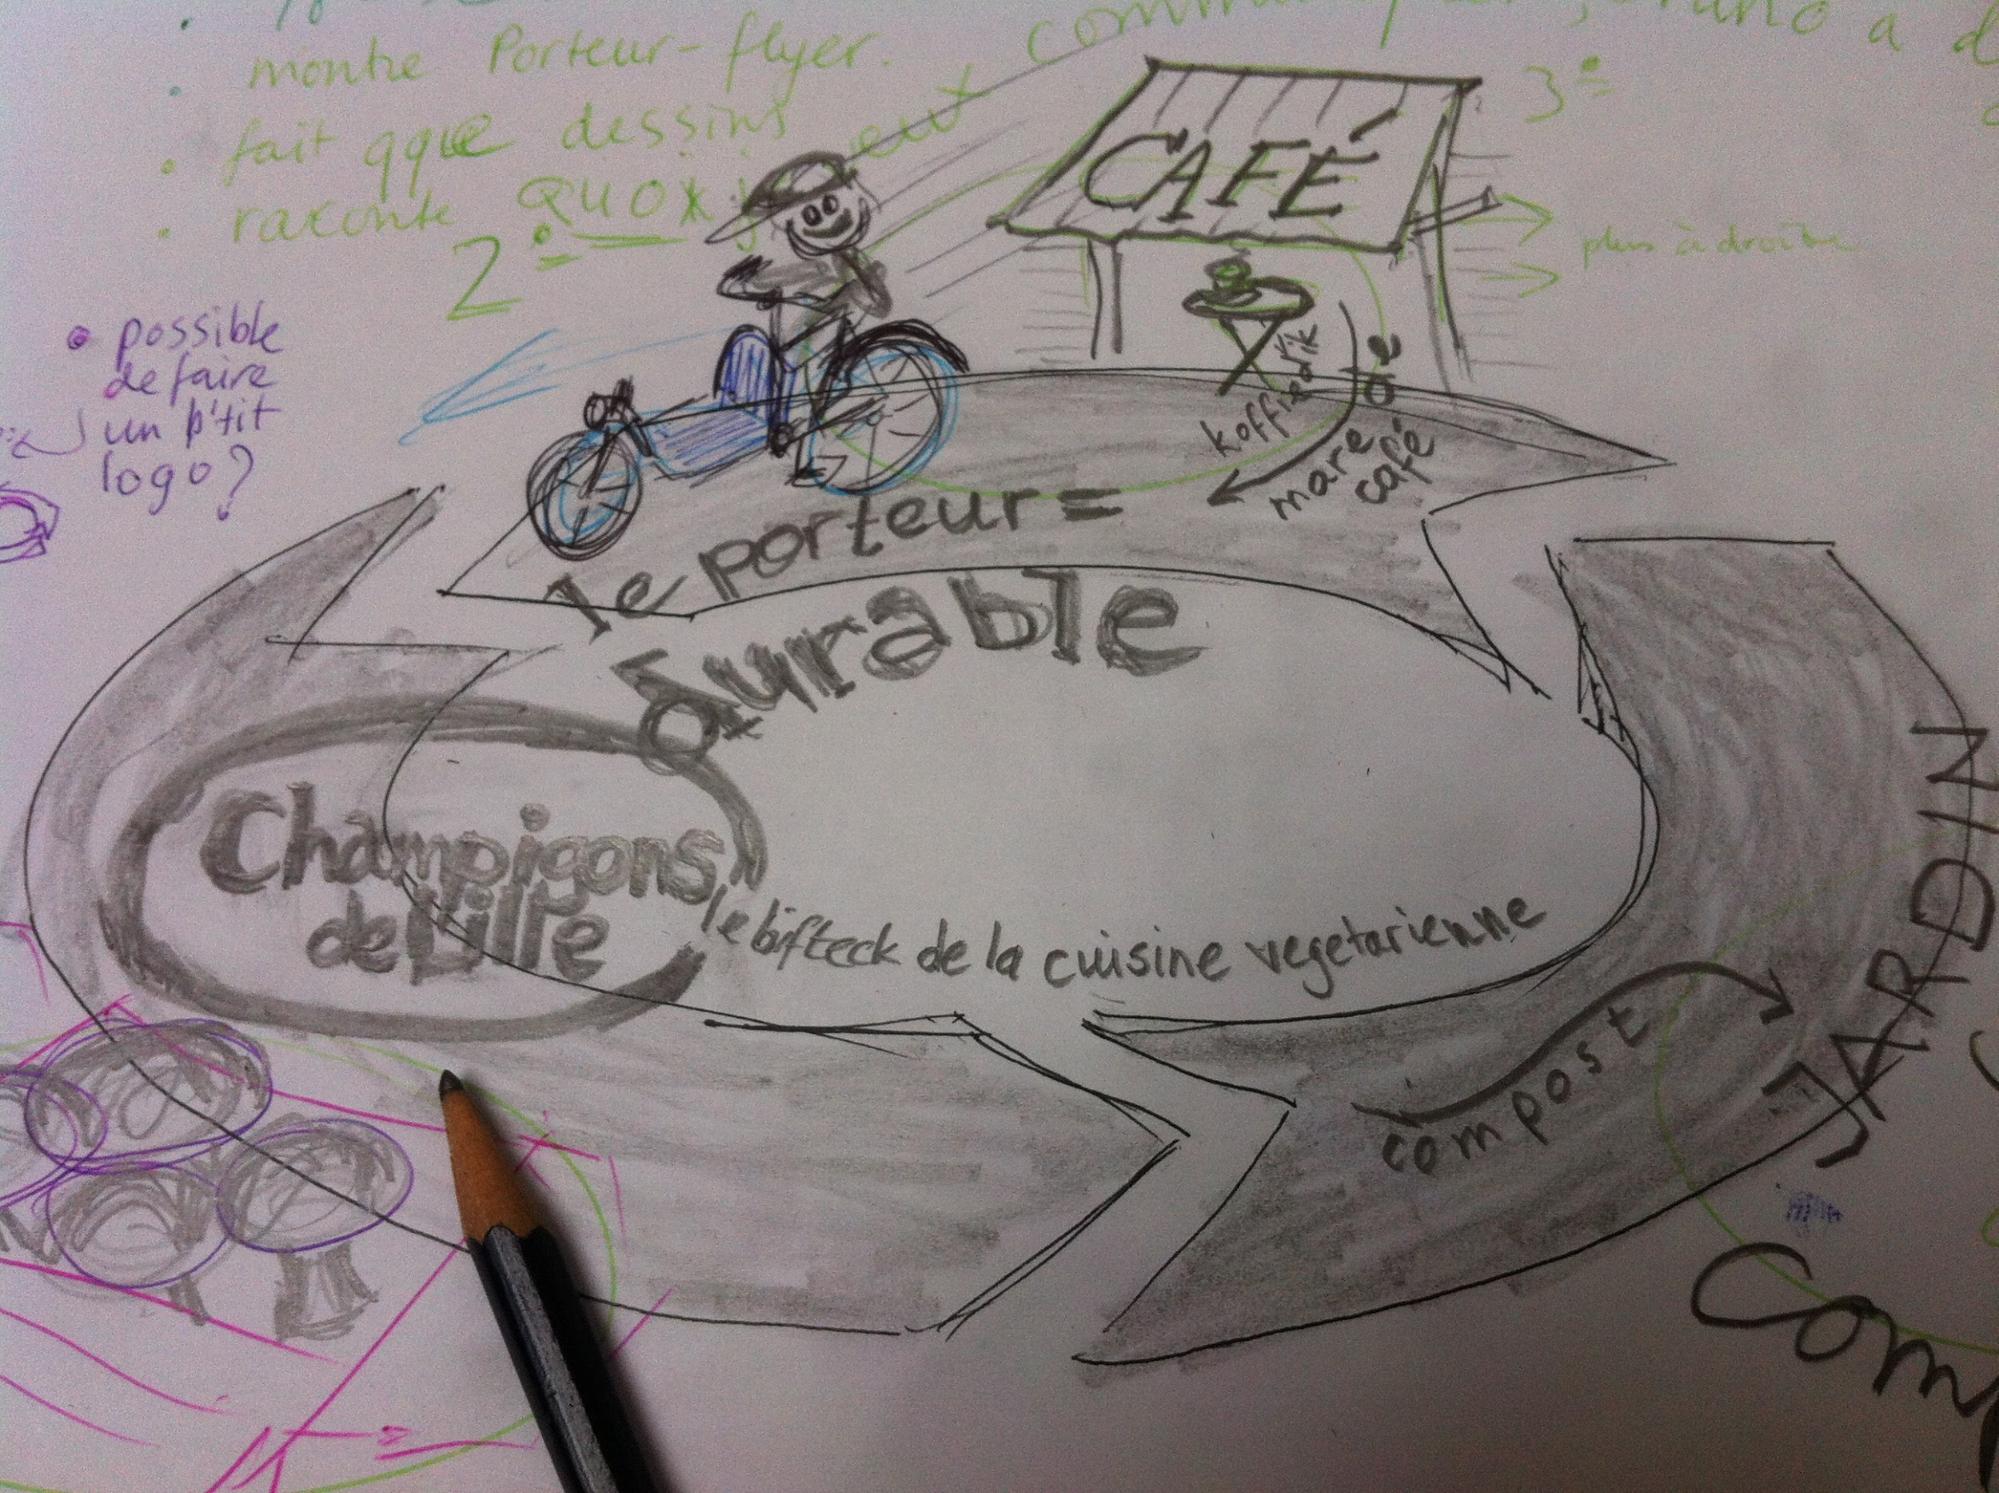 montre Porteur-flyer.
fait qque dessins
raconte QUOX
2°
3°
plus à droite
possible
de faire
un p'tit
logo?
CAFÉ
koffiedik
mare de
café
le porteur =
durable
Champigons
de Lille
le bifteck de la cuisine vegetarienne
compost
JARDIN
Comp